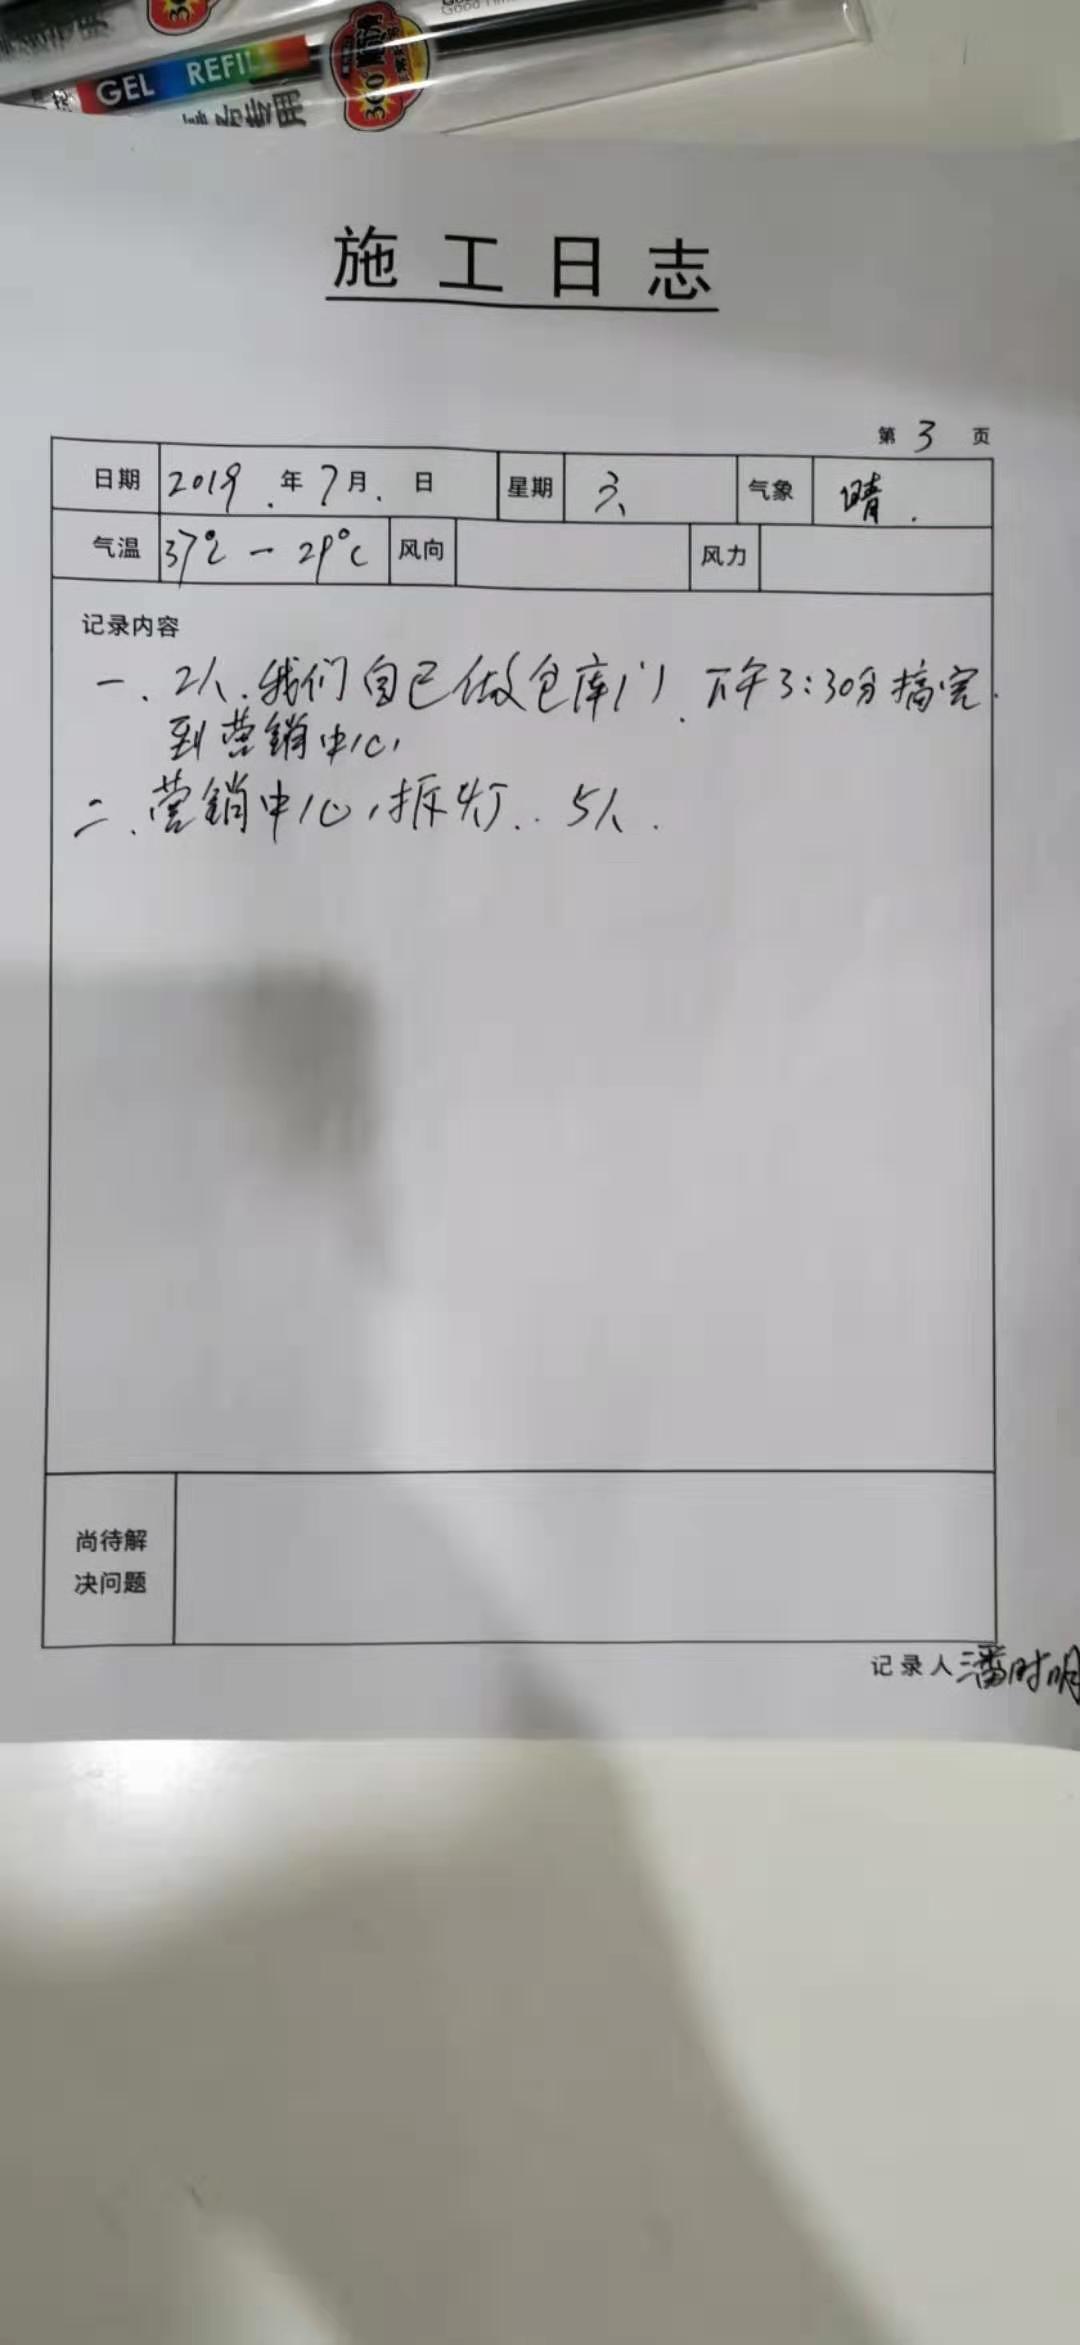 GEL REFIL
360°
施工日志
第 3 页
日期 2019.年7月.日 星期 六 气象 晴.
气温 37℃-29℃ 风向 风力
记录内容
一、2人.我们自己做仓库门.下午3:30分搞完.
到营销中心,
二、营销中心,拆灯..5人.
尚待解
决问题
记录人 潘时明